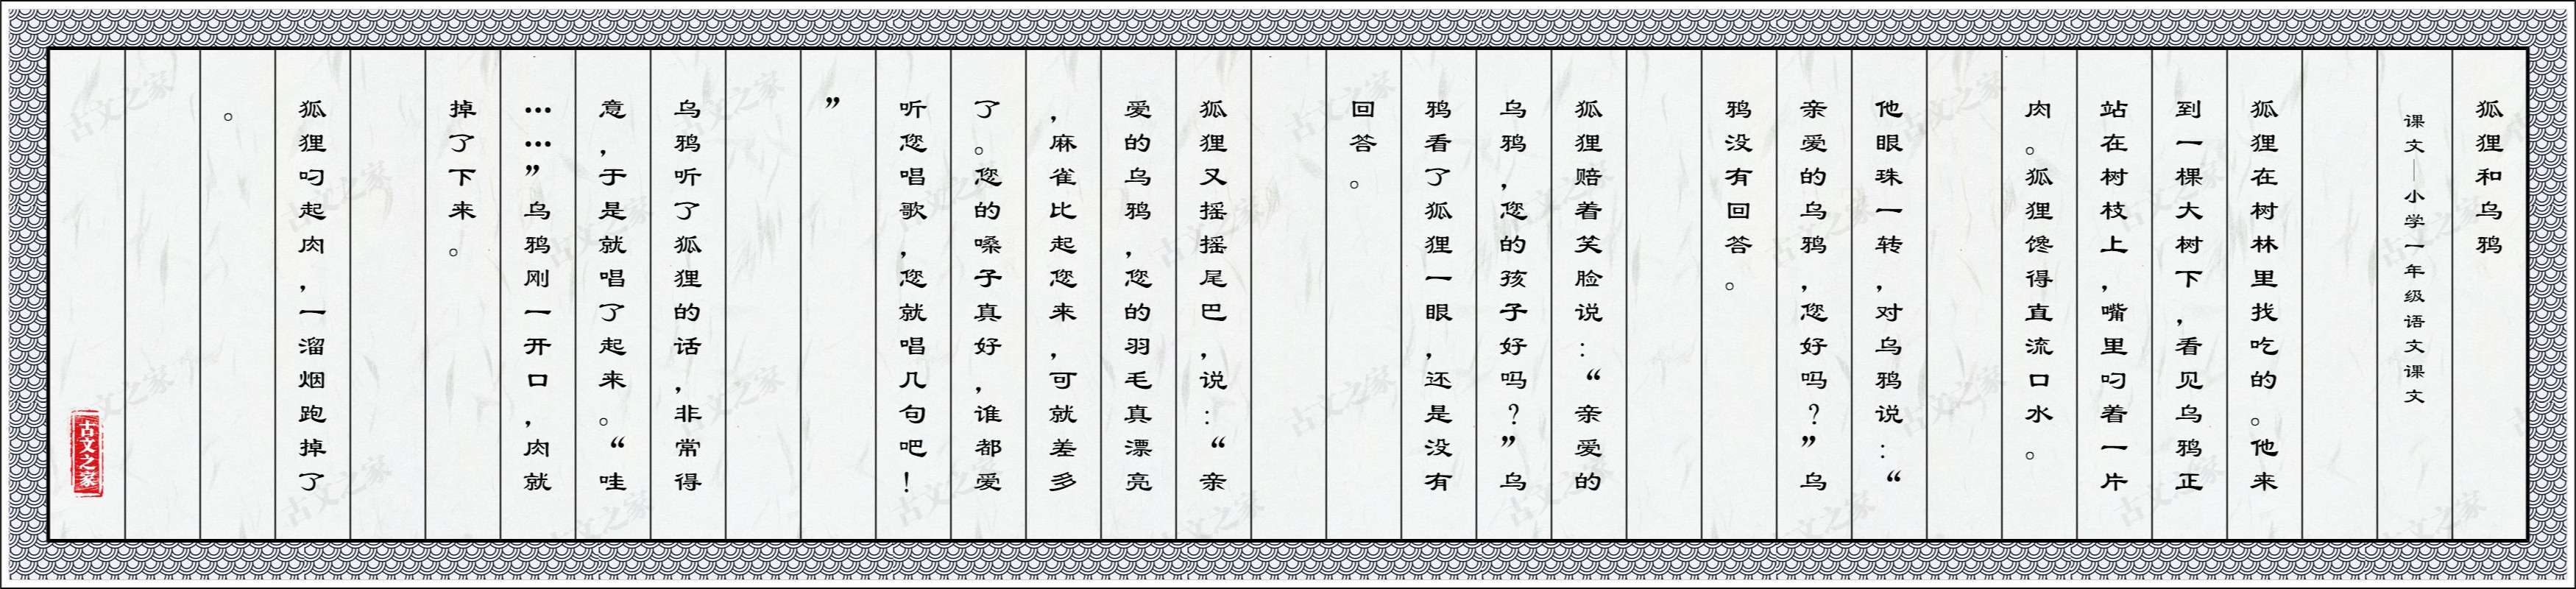 狐狸和乌鸦
课文—小学一年级语文课文
狐狸在树林里找吃的。他来
到一棵大树下,看见乌鸦正
站在树枝上,嘴里叼着一片
肉。狐狸馋得直流口水。
他眼珠一转,对乌鸦说:“
亲爱的乌鸦,您好吗?”乌
鸦没有回答。
狐狸赔着笑脸说:“亲爱的
乌鸦,您的孩子好吗?”乌
鸦看了狐狸一眼,还是没有
回答。
狐狸又摇摇尾巴,说:“亲
爱的乌鸦,您的羽毛真漂亮
,麻雀比起您来,可就差多
了。您的嗓子真好,谁都爱
听您唱歌,您就唱几句吧!
”
乌鸦听了狐狸的话,非常得
意,于是就唱了起来。“哇
……”乌鸦刚一开口,肉就
掉了下来。
狐狸叼起肉,一溜烟跑掉了
。
古文之家